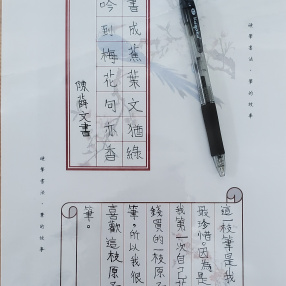 硬筆書法·筆的故事
書成蕉葉文猶綠
吟到梅花句亦香
陳文書
硬筆書法·筆的故事
這一枝筆是我
最珍惜。因為是
我第一次自己
錢買的一枝原子
筆。所以我很
喜歡這枝原子
筆。